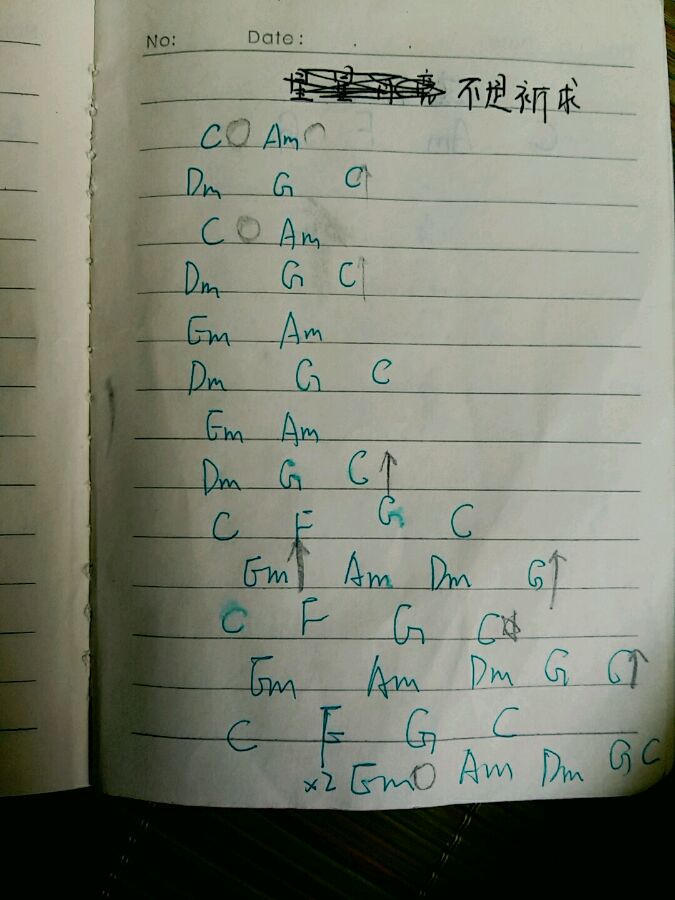 No: Date:
不想祈求
C Am
Dm G C
C Am
Dm G C
Em Am
Dm G C
Em Am
Dm G C
C F G C
Em Am Dm G
C F G C
Em Am Dm G C
C F G C
x2 Em Am Dm G C